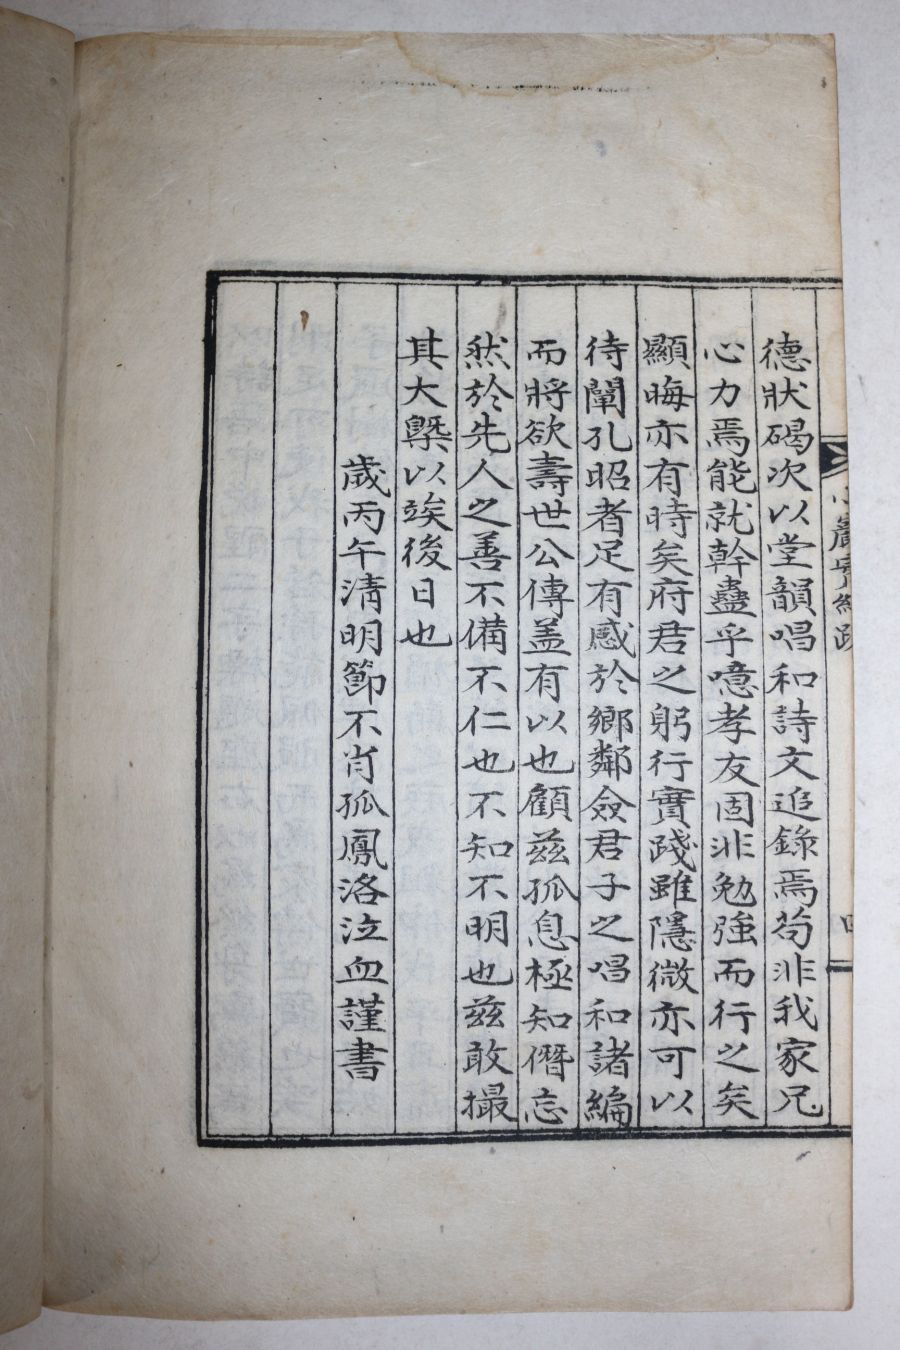 德狀碣次以堂韻唱和詩文追錄焉苟非我家兄
心力焉能就幹蠱乎噫孝友固非勉強而行之矣
顯晦亦有時矣府君之躬行實踐雖隱微亦可以
待闡孔昭者足有感於鄉鄰僉君子之唱和諸編
而將欲壽世公傳盖有以也顧茲孤息極知僭忘
然於先人之善不備不仁也不知不明也茲敢撮
其大槩以竢後日也
歲丙午清明節不肖孤鳳洛泣血謹書